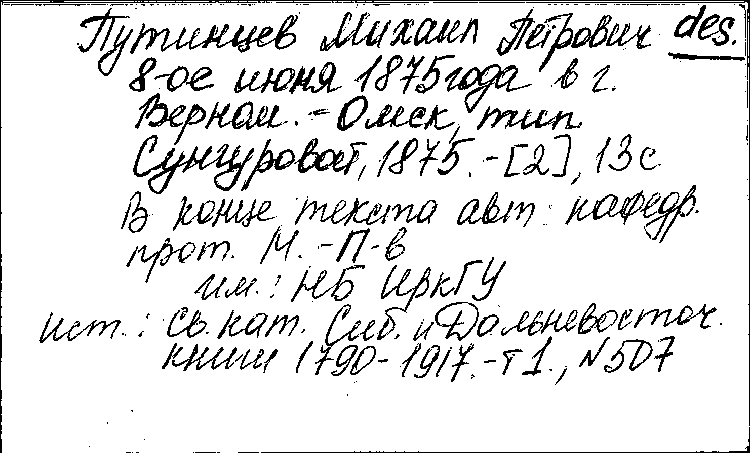 Путинцев Михаил Петрович des.
8-ое июня 1875 года в г.
Верном. - Омск, тип.
Сунгуровой, 1875. - [2], 13 с
В конце текста авт: кафедр.
прот. М. - П-в
им.: НБ ИркГУ
Ист.: Св. кат. Сиб. и Дальневосточ.
книги 1790-1917. - т 1., N 507